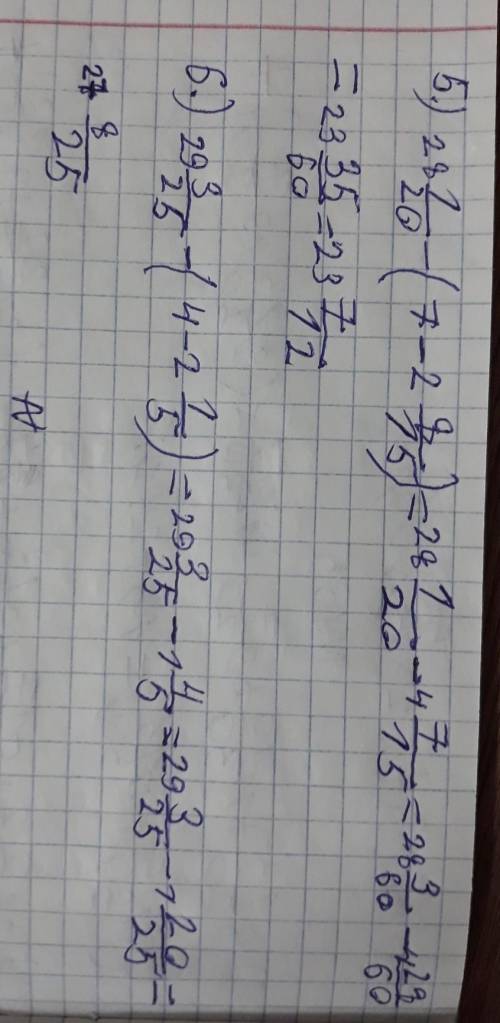 5.) 28 1/20 - (7 - 2 8/15) = 28 1/20 - 4 7/15 = 28 3/60 - 4 28/60
= 23 35/60 = 23 7/12
6.) 29 3/25 - (4 - 2 1/5) = 29 3/25 - 1 4/5 = 29 3/25 - 1 20/25 =
27 8/25